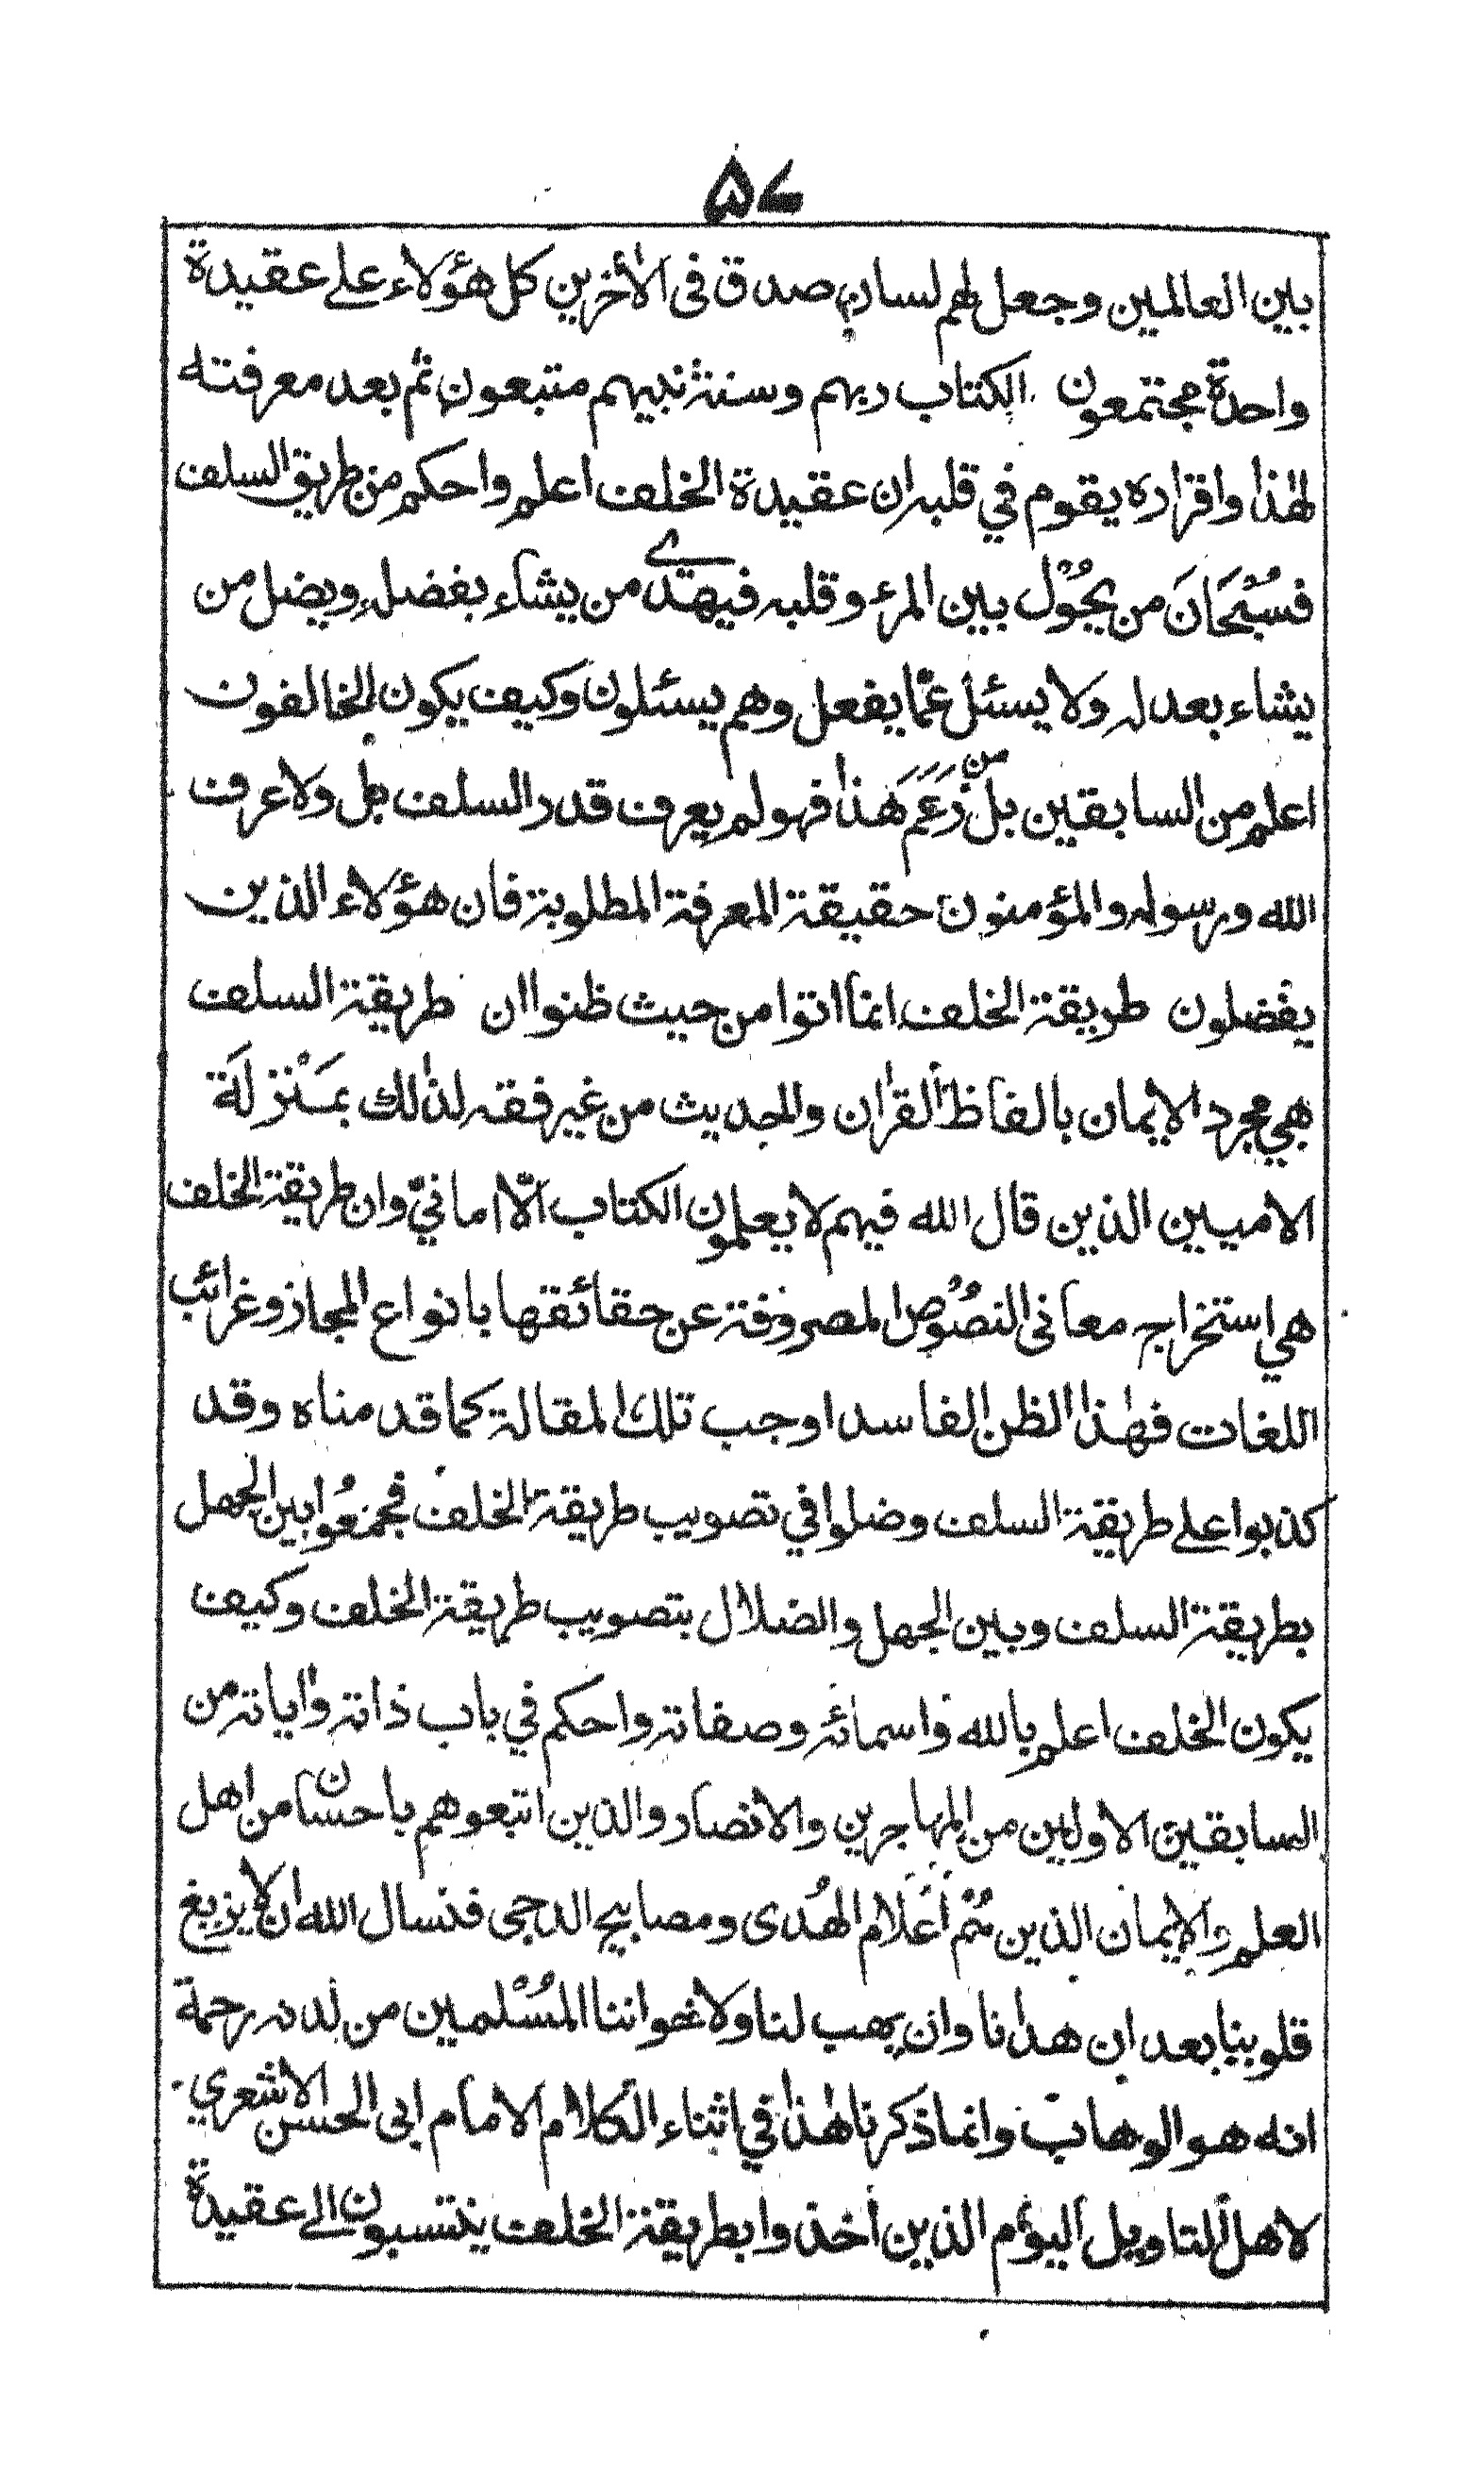 ۵۷
بين العالمين وجعل لهم لسان صدق فى الأخرين كل هؤلاء على عقيدة
واحدة مجتمعون الكتاب ربهم وسنة نبيهم متبعون ثم بعد معرفته
لهذا واقراره يقوم في قلبه ان عقيدة الخلف اعلم واحكم من طريق السلف
فسُبْحَانَ من يحُوْل بين المرء وقلبه فيهدے من يشاء بفضله ويضل من
يشاء بعدله ولا يسئل عمّا يفعل وهم يسئلون وكيف يكون الخالفون
اعلم من السابقين بل من زَعَمَ هٰذا فهو لم يعرف قدر السلف بل ولا عرف
الله ورسوله والمؤمنون حقيقة المعرفة المطلوبة فان هؤلاء الذين
يفضلون طريقة الخلف انما اتوا من حيث ظنوا ان طريقة السلف
هي مجرد الايمان بالفاظ القران والحديث من غير فقه لذٰلك بمَنْزلَة
الاميين الذين قال الله فيهم لا يعلمون الكتاب الّا اماني وان طريقة الخلف
هي استخراجه معانى النصُوْص المصروفة عن حقائقها بانواع المجاز وغرائب
اللغات فهٰذا الظن الفاسد اوجب تلك المقالة كما قدمناه وقد
كذبوا على طريقة السلف وضلوا في تصويب طريقة الخلف فجمعُوا بين الجهل
بطريقة السلف وبين الجهل والضلال بتصويب طريقة الخلف وكيف
يكون الخلف اعلم بالله واسمائه وصفاته واحكم في باب ذاته واياته من
السابقين الاولين من المهاجرين والانصار والذين اتبعوهم باحسان من اهل
العلم والايمان الذين هُمْ أَعْلَام الهُدى ومصابيح الدجى فنسال الله ان لا يزيغ
قلوبنا بعد ان هدٰنا وان يهب لنا ولاخواننا المُسْلمين من لدنه رحمة
انه هو الوهاب وانما ذكرنا هٰذا في اثناء الكلام الامام ابى الحسن الاشعري
لاهل التاويل اليوم الذين أخذوا بطريقة الخلف ينتسبون الى عقيدة